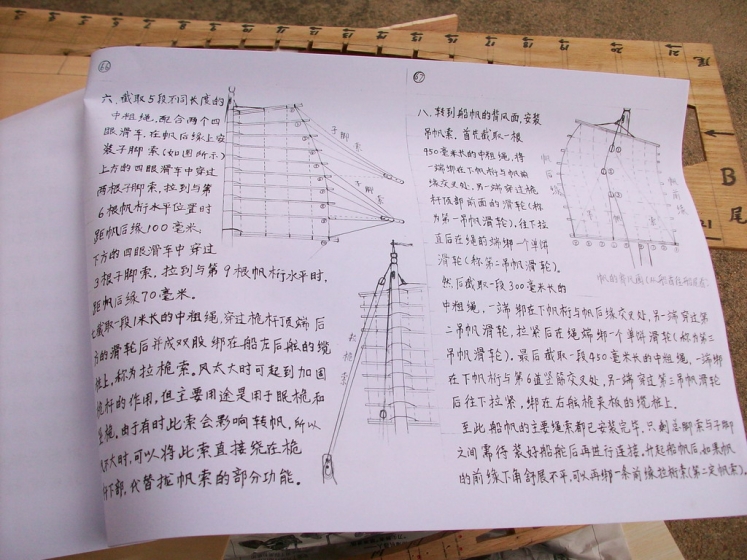 66
六、截取5段不同长度的
中粗绳，配合两个四
眼滑车，在帆后缘上安
装子脚索（如图所示）
上方的四眼滑车中穿过
两根子脚索，拉到与第
6根帆桁水平位置时
距帆后缘100毫米。
下方的四眼滑车中穿过
3根子脚索，拉到与第9根帆桁水平时，
距帆后缘70毫米。
七截取一段1米长的中粗绳，穿过桅杆顶端后
的滑轮后并成双股绑在船左后舷的缆
桩上，称为拉桅索。风太大时可起到加固
桅杆的作用，但主要用途是用于眠桅和
桅。由于有时此索会影响转帆，所以
风不大时，可以将此索直接绕在桅
杆下部，代替拢帆索的部分功能。
子脚索
子脚索
拉桅索
67
八、转到船帆的背风面，安装
吊帆索。首先截取一根
950毫米长的中粗绳，将
一端绑在下帆桁与帆前
缘交叉处，另一端穿过桅
杆顶部前面的滑轮（称
为第一吊帆滑轮），往下拉
直后在绳的端绑一个单饼
滑轮（称第二吊帆滑轮）。
然后截取一段300毫米长的
中粗绳，一端绑在下帆桁与帆后缘交叉处，另一端穿过第
二吊帆滑轮，拉紧后在绳端绑一个单饼滑轮（称为第三
吊帆滑轮）。最后截取一段450毫米长的中粗绳，一端绑
在下帆桁与第6道竖筋交叉处，另一端穿过第三吊帆滑轮
后往下拉紧，绑在右舷桅夹板的缆桩上。
至此船帆的主要绳索都已安装完毕，只剩总脚索与子脚
之间需待装好船舵后再进行连接。升起船帆后，如果帆
的前缘下角舒展不平，可以再绑一条前缘拉桁索（第二定帆索）。
帆后缘
帆前缘
帆的背风面
尾
B
尾
21